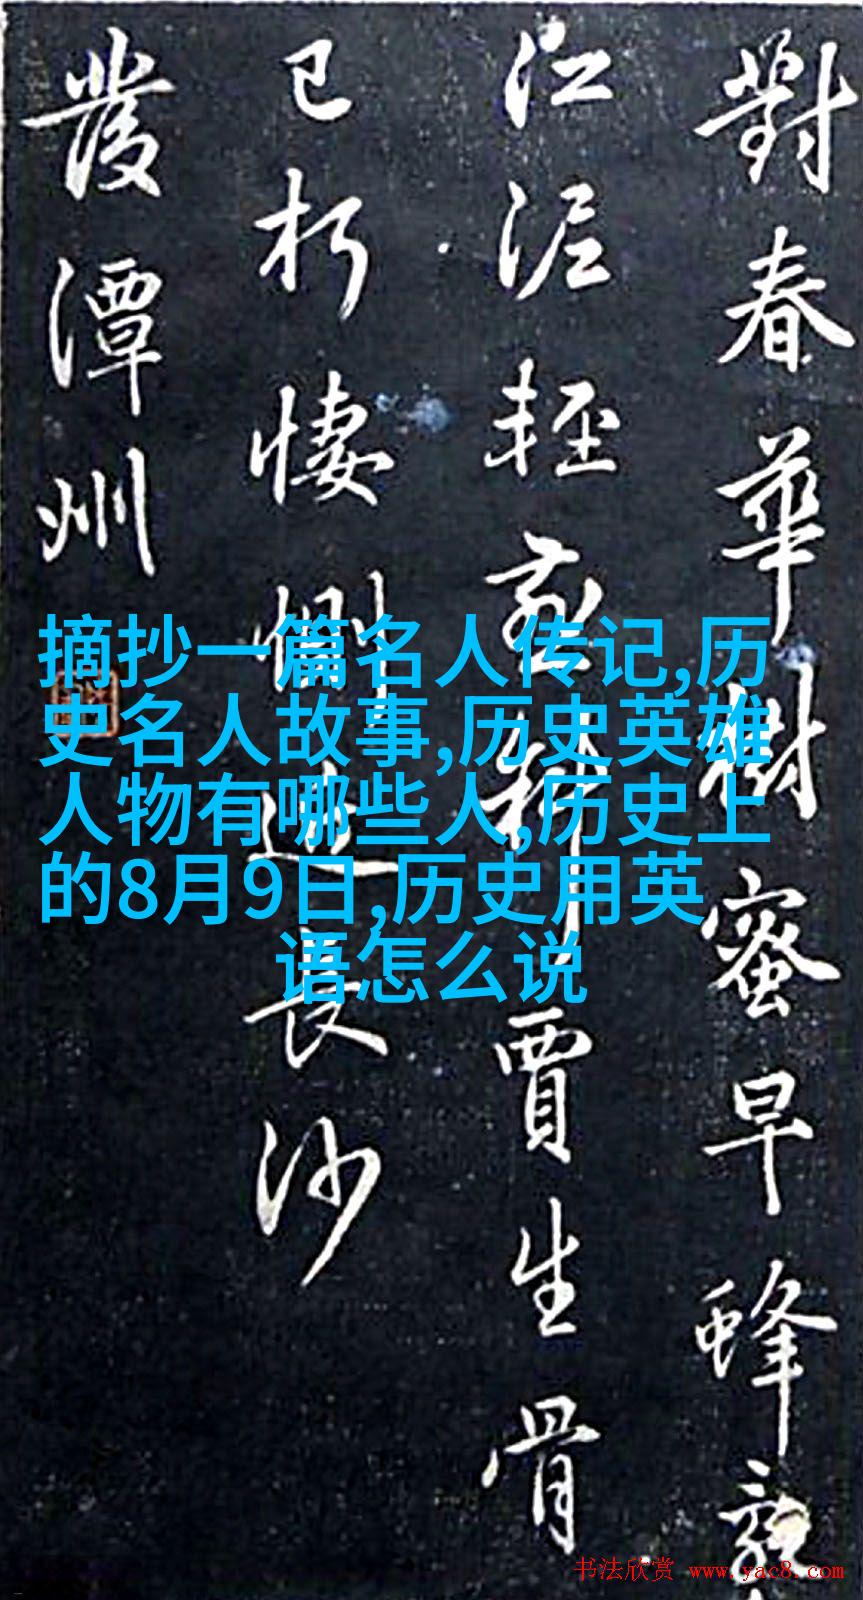 對春華樹蜜早蜂亂
江泥輕燕斜賈生骨
已朽悽惻近長沙
發潭州
摘抄一篇名人传记,历
史名人故事,历史英雄
人物有哪些人,历史上
的8月9日,历史用英
语怎么说
书法欣赏 www.yac8.com